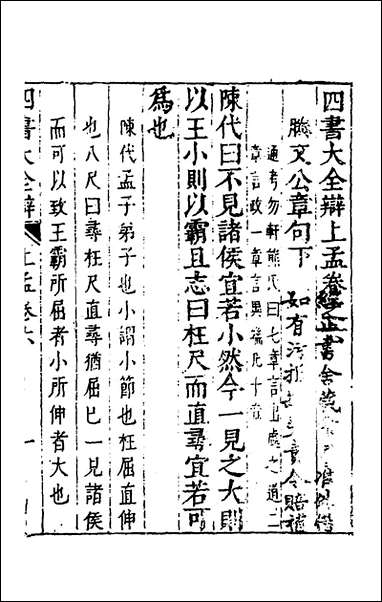 四書大全辯上孟卷之六
滕文公章句下
通考勿軒熊氏曰七章言出處之道二
章言政一章言異端凡十章
陳代曰不見諸侯宜若小然今一見之大則
以王小則以霸且志曰枉尺而直尋宜若可
爲也
陳代孟子弟子也小謂小節也枉屈直伸
也八尺曰尋枉尺直尋猶屈已一見諸侯
而可以致王霸所屈者小所伸者大也
四書大全辯
上孟卷六
一
書舍
如有污
賠補